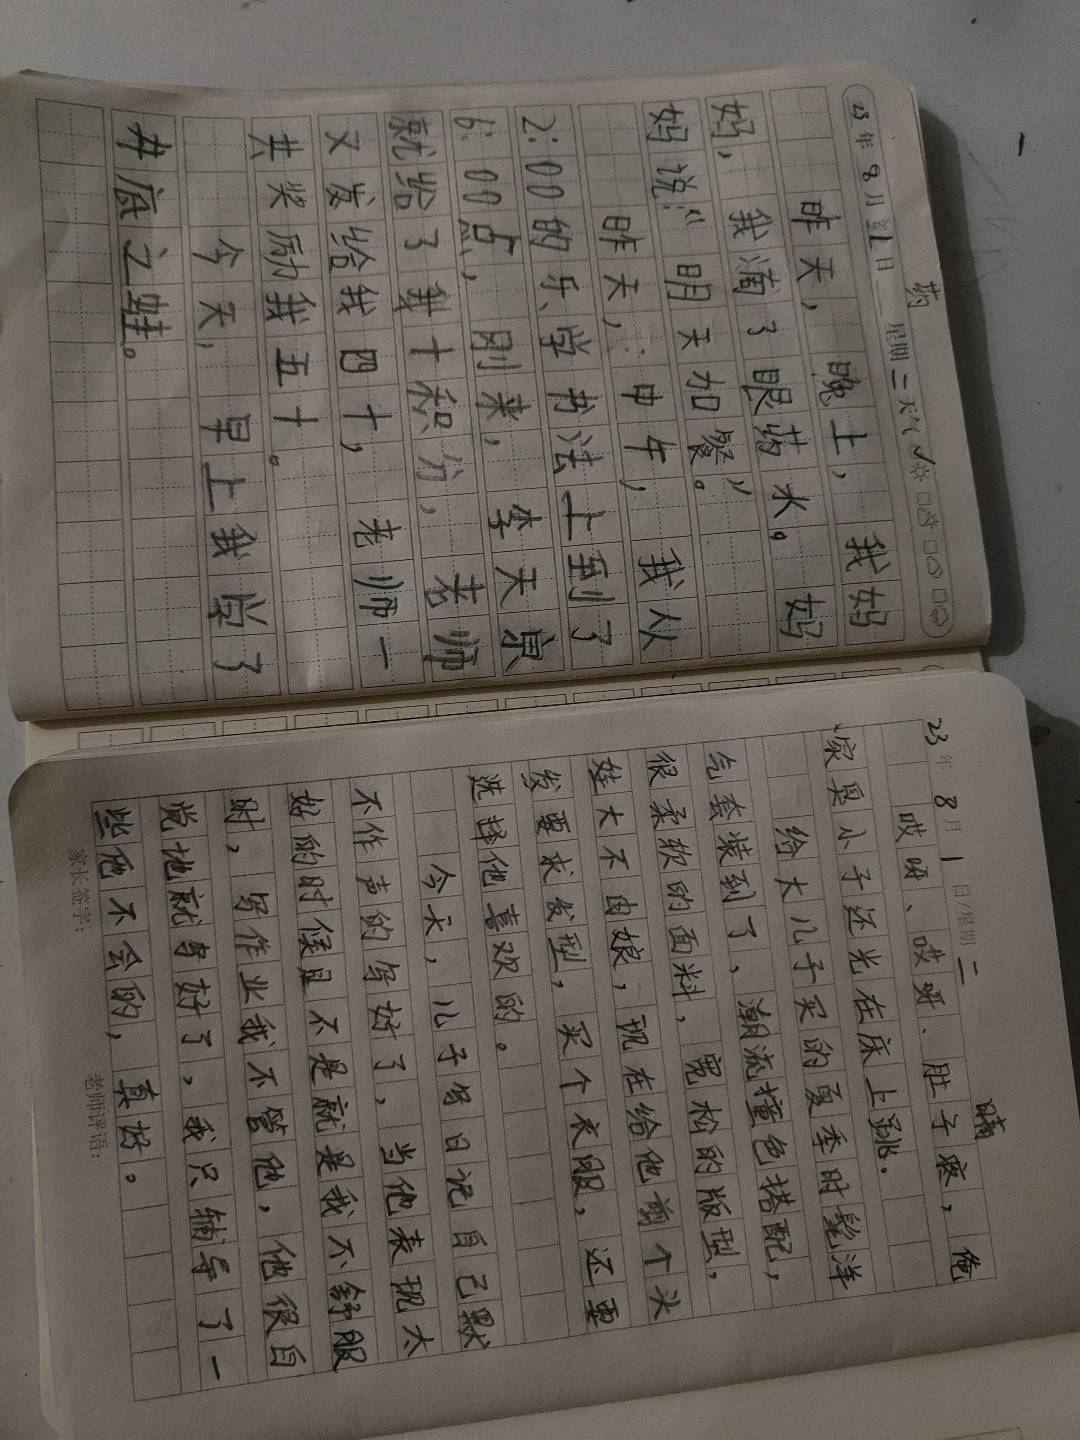 23年8月1日 星期二 天气
药
昨天，晚上，我妈
妈，我滴了眼药水。妈
妈说：“明天加餐”。
昨天，中午，我从
2:00的乐学书法上到了
6:00点，刚来，李天
就给了我十积分，老师
又发给我四十，老师一
共奖励我五十。
今天，早上我学了
井底之蛙。
23年8月1日/星期二
晴
哎呀、哎呀、肚子疼，俺
家臭小子还光在床上跳。
给大儿子买的夏季时髦洋
气套装到了、潮流撞色搭配，
很柔软的面料，宽松的版型，
娃大不由娘，现在给他剪个头
发要求发型，买个衣服，还要
选择他喜欢的。
今天，儿子写日记自己默
不作声的写好了，当他表现太
好的时候是不是就是我不舒服
时，写作业我不管他，他很自
觉地就写好了，我只辅导了一
些他不会的，真好。
家长签字：
老师评语：